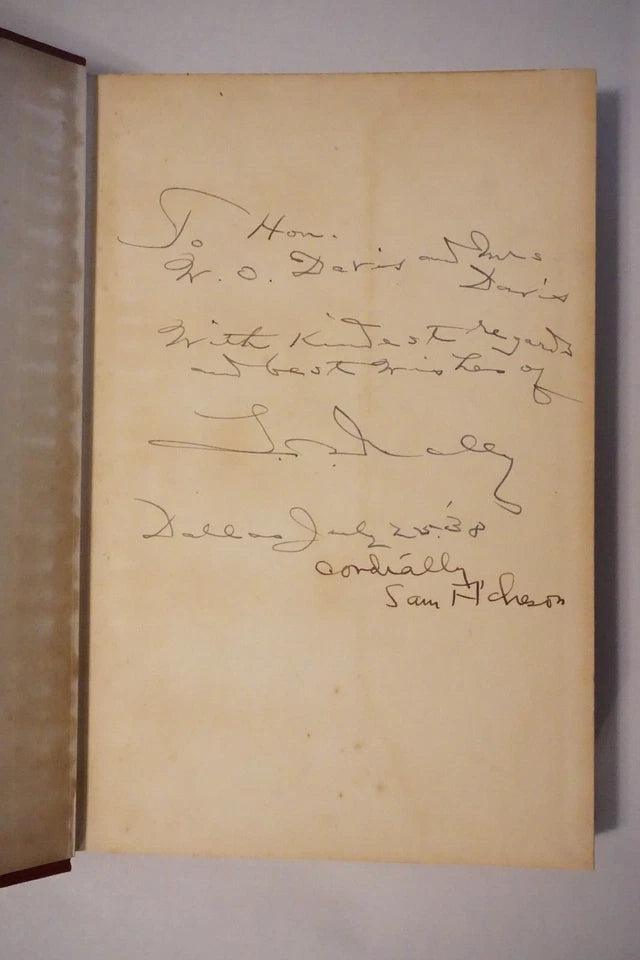 To Hon.
W. O. Davis and Mrs
Davis
With Kindest regards
and best wishes of
Dallas July 25. '38
cordially,
Sam Acheson